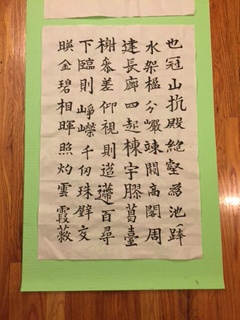 也冠山抗殿絕壑為池跨
水架楹分巖竦闕高閣周
建長廊四起棟宇膠葛臺
榭參差仰視則迢遰百尋
下臨則崢嶸千仞珠璧交
暎金碧相暉照灼雲霞蔽